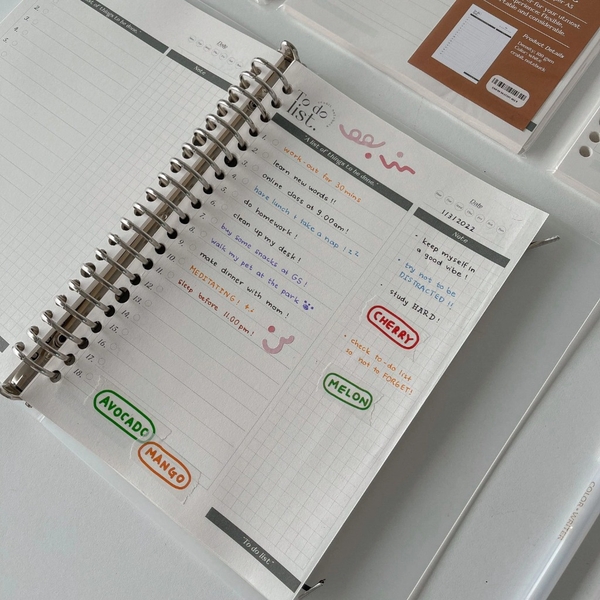 "A list of things to be done."
Note
Date
2.
3.
4.
5.
Product Details
To do
list.
"A list of things to be done."
Date
1/3/2022
Note
work-out for 30mins
learn new words !!
online class at 9.00am!
have lunch & take a nap
do homework!
clean up my desk!
buy some snacks at GS!
walk my pet at the park
make dinner with mom!
MEDITATING!
sleep before 11.00pm!
2.
3.
5.
6.
7.
8.
9.
10.
11.
12.
13.
14.
15.
16.
17.
18.
• keep myself in
a good vibe!
• try not to be
DISTRACTED !!
• study HARD!
CHERRY
• check to-do list
so not to FORGET!
MELON
AVOCADO
MANGO
"To do list."
COLOR-WRITER